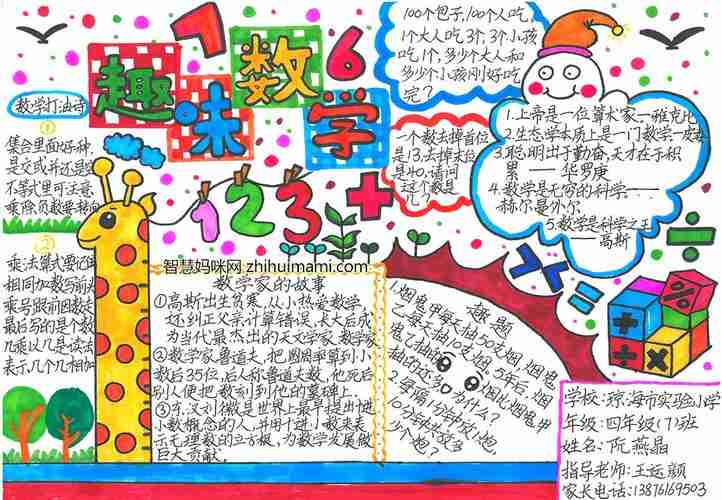 趣味数学
7
6
数学打油诗
①
集合里面好种,
是交或并还是空
不等式里可注意,
乘除负数要转向
②
乘法算式要记住
相同加数写前头
乘号跟前因数走
最后写的是个数
几乘以几是读法
表示几个几相加
100个包子,100个人吃,
1个大人吃3个,3个小孩
吃1个,多少个大人和
多少个小孩刚好吃
完?
一个数去掉首位
是13,去掉末位
是40,请问
这个数是
几?
1.上帝是一位算术家—雅克比
2.生态学本质上是一门数学—皮
3.聪明出于勤奋,天才在于积
累 —— 华罗庚
4.数学是无穷的科学——
赫尔曼外尔
5.数学是科学之王
——高斯
1 2 3 +
智慧妈咪网 zhihuimami.com
数学家的故事
①高斯出生贫寒,从小热爱数学,
还纠正父亲计算错误,长大后成
为当代最杰出的天文学家,数学家
②数学家鲁道夫,把圆周率算到小
数后35位,后人称鲁道夫数,他死后
别人便把数刻到他的墓碑上.
③东汉刘徽是世界上最早提出十进
小数概念的人,并用十进小数来表
示无理数的立方根,为数学发展做
巨大贡献。
趣题
1.烟鬼甲每天抽50支烟,烟鬼
乙每天抽10支烟,5年后,烟
鬼乙抽的
烟比烟鬼甲
抽的还多,为什么?
2.每隔1分钟放1炮,
10分钟共放多
少个炮?
÷
× =
%
+ ÷
÷ ×
学校:琼海市实验小学
年级:四年级(7)班
姓名:阮燕晶
指导老师:王运颜
家长电话:13876169503